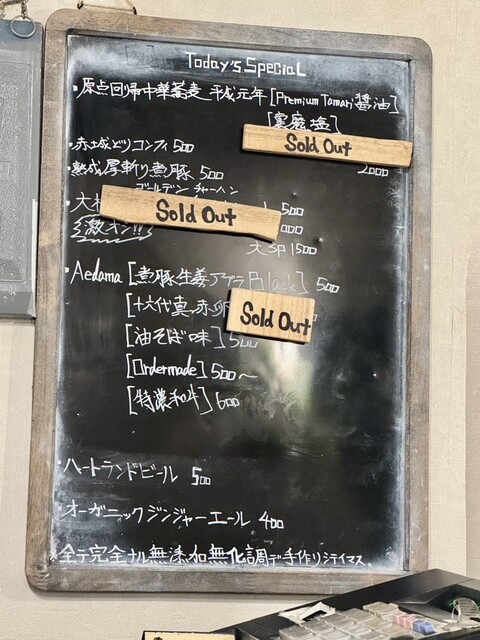 Today's Special
・原点回帰中華蕎麦 平成元年 [Premium Tamari 醤油]
Sold Out
2000
・赤城どりコンフィ 500
・熟成厚斬り煮豚 500
ゴールデン チャーハン
・大
Sold Out
500
激オシ!!
大sp 1500
・Aedama [煮豚生姜アブラBlack] 500
[十六代真っ赤卵
Sold Out
[油そば味] 500
[Ordermade] 500〜
[特濃和牛] 600
・ハートランドビール 500
・オーガニックジンジャーエール 400
※全テ完全ナル無添加無化調デ手作リシテイマス。